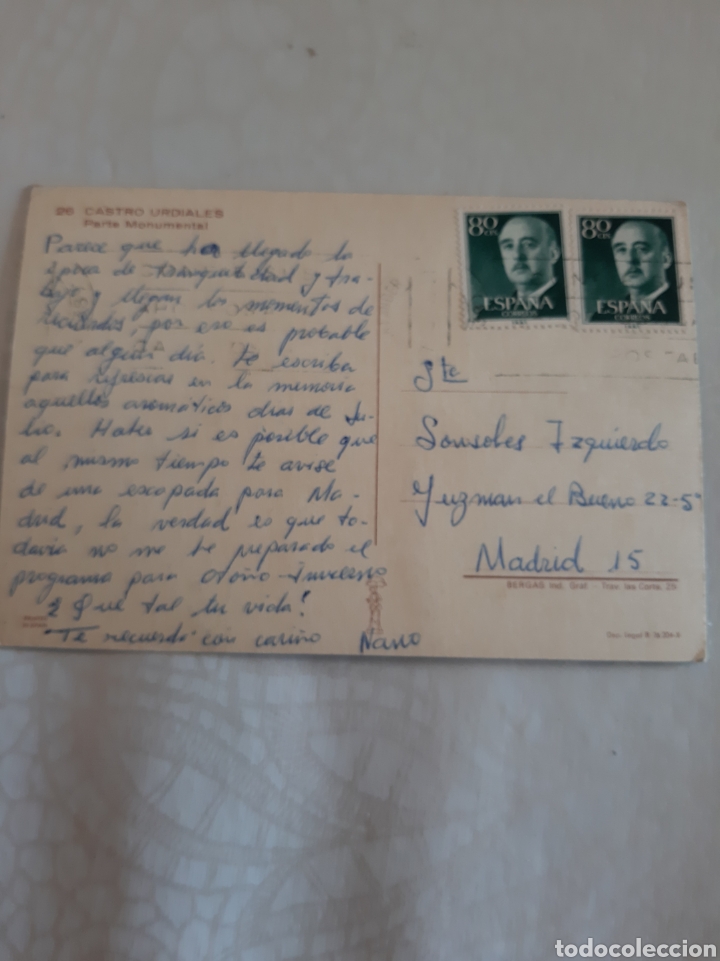 26 CASTRO URDIALES
Parte Monumental
Parece que ha llegado la
época de tranquilidad y tra-
bajo y llegan los momentos de
por eso es probable
que algún día te escriba
para refrescar en la memoria
aquellos aromáticos dias de Ju-
lio. Hasta si es posible que
al mismo tiempo te avise
de una escapada para Ma-
drid, la verdad es que to-
davia no me he preparado el
programa para Otoño-Invierno
¿Que tal tu vida?
Te recuerda con cariño Nano
80 CTS
ESPAÑA
CORREOS
80 CTS
ESPAÑA
CORREOS
Sta
Sonsoles Izquierdo
Guzman el Bueno 22-5º
Madrid 15
BERGAS Ind. Graf. - Trav. les Corts, 25
todocoleccion